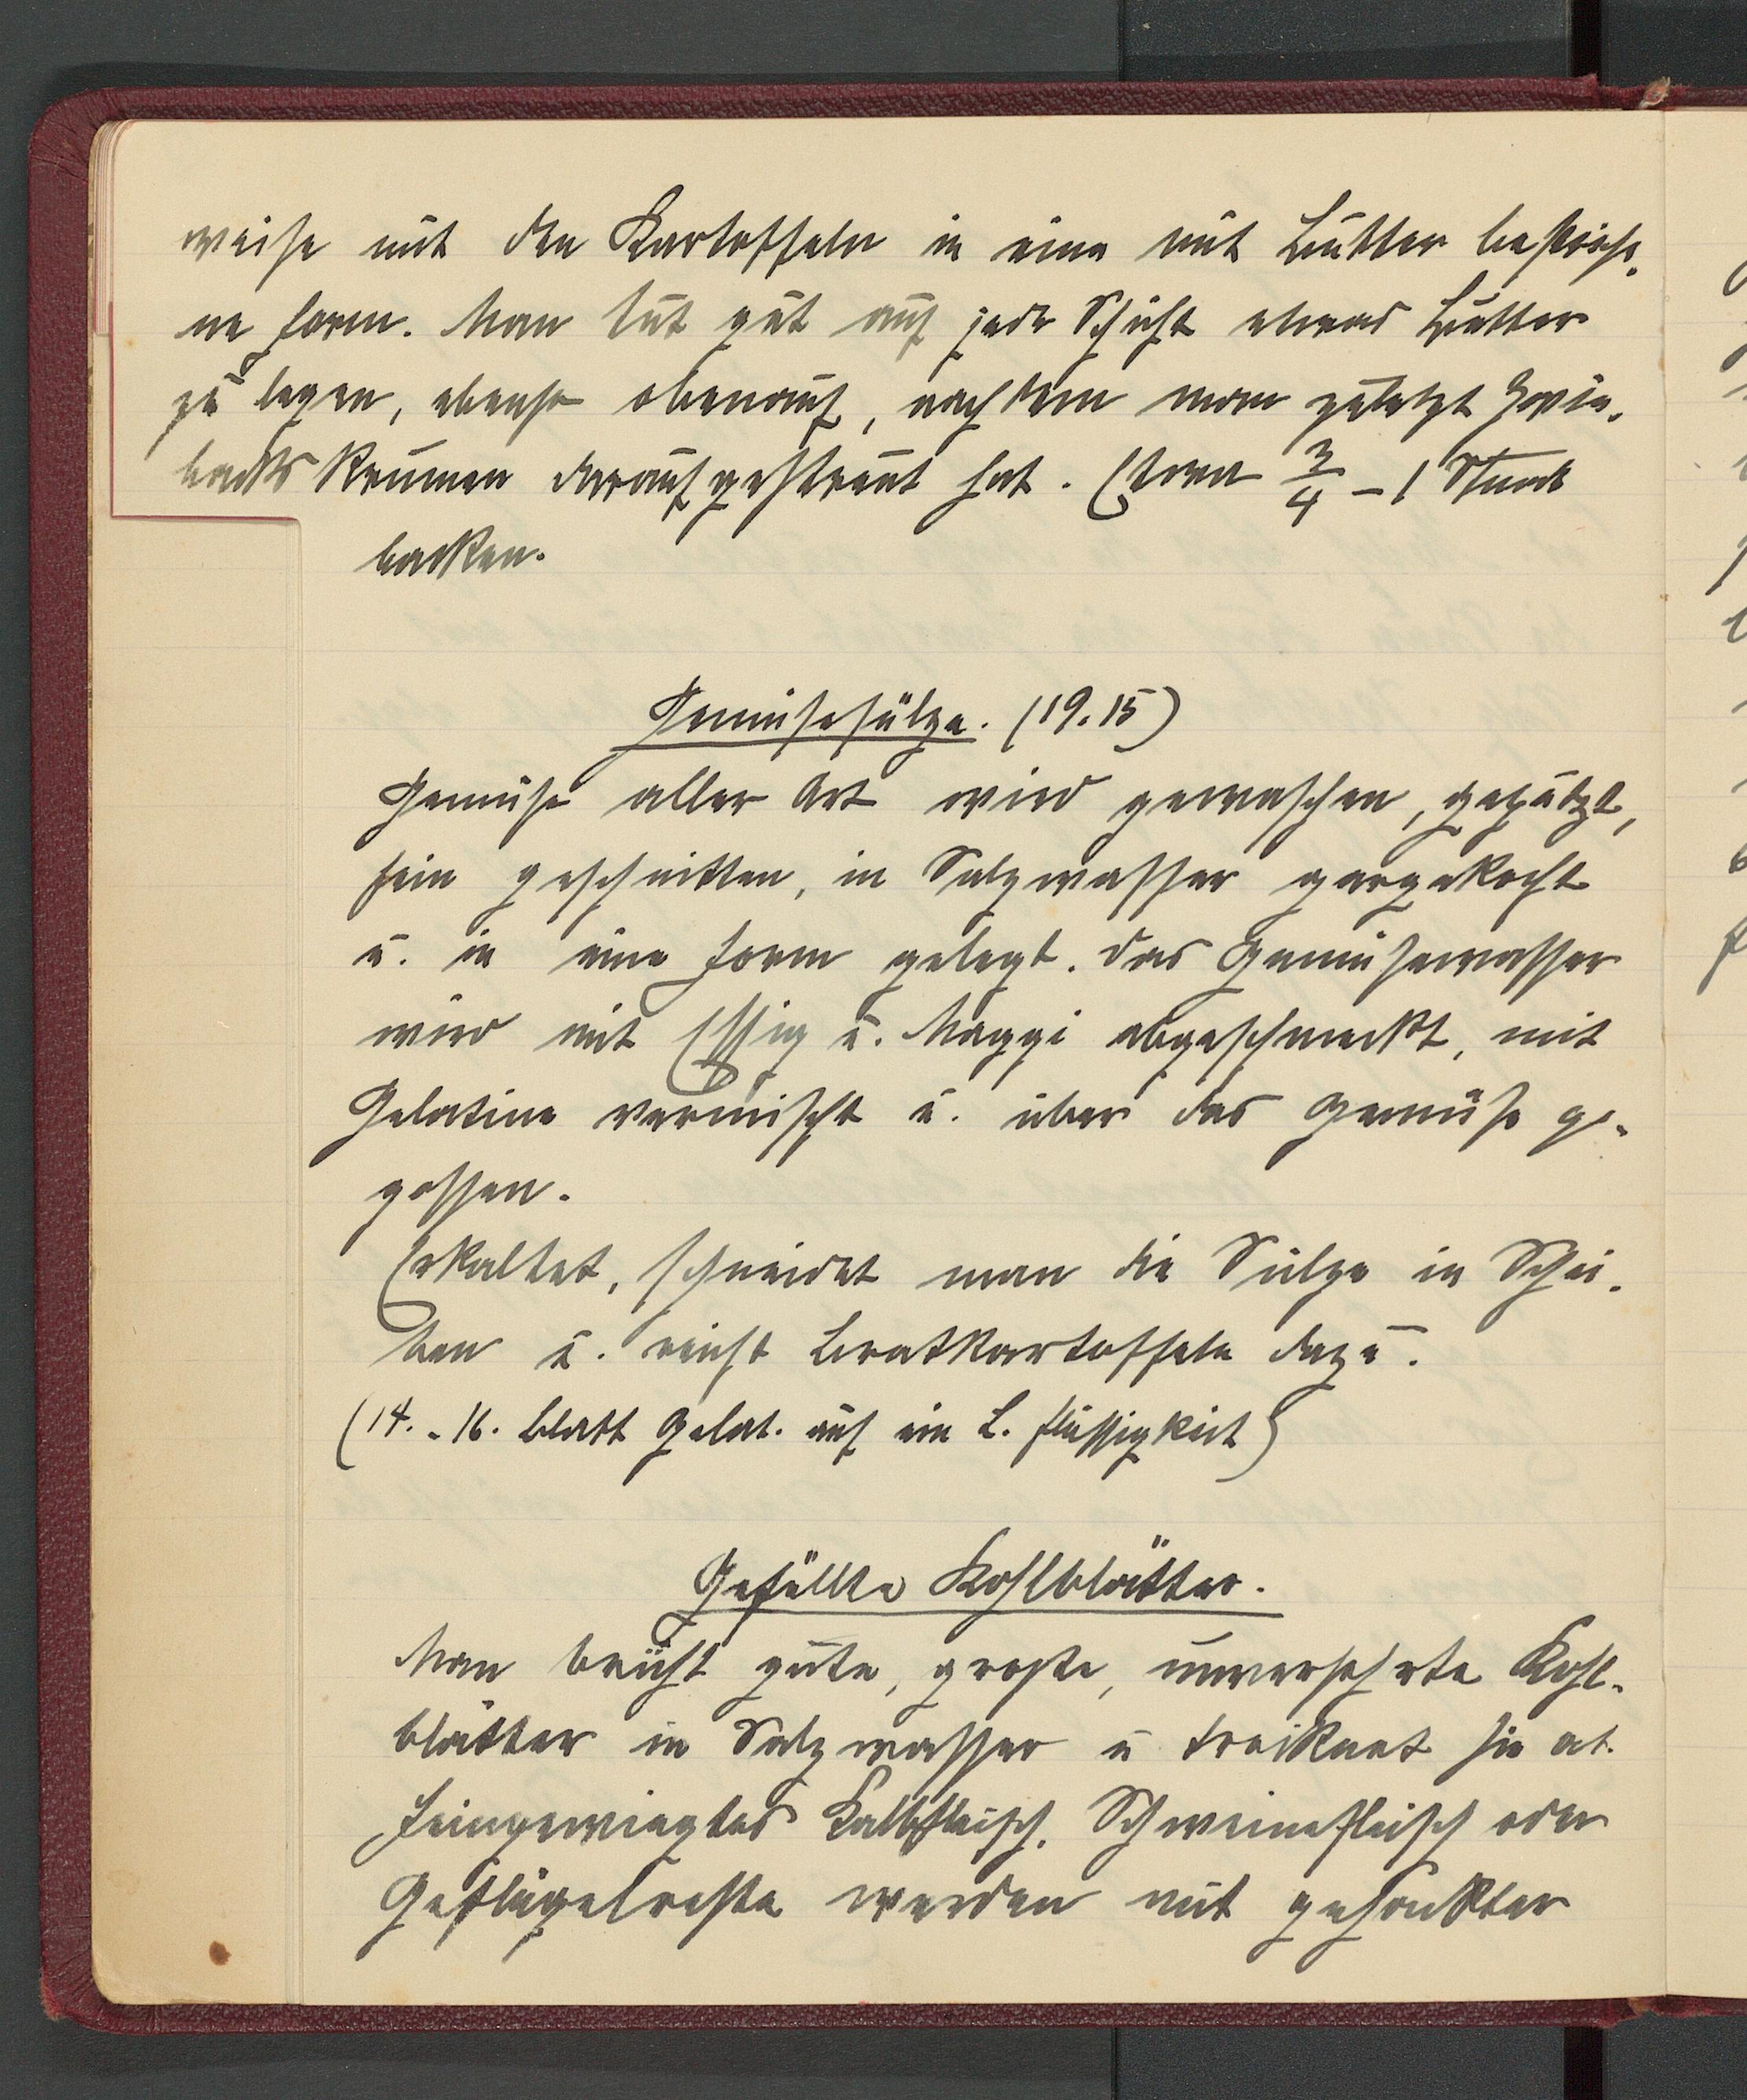 weise mit den Kartoffeln in eine mit Butter bestriche-
ne Form. Man tut gut auf jede Schicht etwas Butter
zu legen, ebenso obenauf, nachdem man zuletzt Zwie-
backskrumen daraufgestreut hat. Etwa 3/4 - 1 Stunde
backen.
Gemüsesülze. (19.15)
Gemüse aller Art wird gewaschen, geputzt,
fein geschnitten, in Salzwasser gargekocht
u. in eine Form gelegt. Das Gemüsewasser
wird mit Essig u. Maggi abgeschmeckt, mit
Gelatine vermischt u. über das Gemüse ge-
gossen.
Erkaltet, schneidet man die Sülze in Schei-
ben u. reicht Bratkartoffeln dazu.
(14.-16. Blatt Gelat. auf ein L. Flüssigkeit)
Gefüllte Kohlblätter.
Man brüht gute, große, unversehrte Kohl-
blätter in Salzwasser u troiknet sie ab.
Feingewiegtes Kalbfleisch, Schweinefleisch oder
Geflügelreste werden mit gehackter